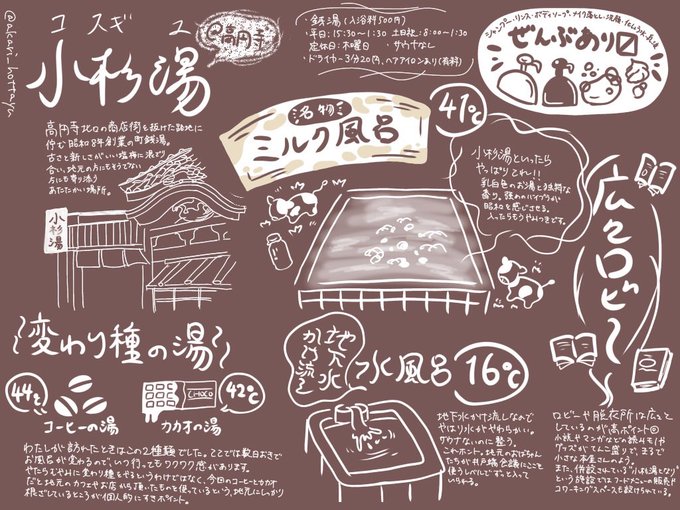 @akari_hottayu
コスギユ
小杉湯
@高円寺
・銭湯(入浴料500円)
・平日:15:30~1:30 土日祝:8:00~1:30
定休日:木曜日 ・サウナなし
・ドライヤー3分20円、ヘアアイロンあり(有料)
シャンプー・リンス・ボディソープ・メイク落とし・洗顔・
ぜんぶあり
高円寺北口の商店街を抜けた路地に
佇む昭和8年創業の町銭湯。
古さと新しさがいい塩梅に混ざり
合い、地元の方にもそうでない
方にも寄り添う
あたたかい場所。
小杉湯
名物
ミルク風呂
41℃
小杉湯といったら
やっぱりこれ!!
乳白色のお湯と独特な
香り。強めのバイブラが
昭和を感じさせる。
入ったらもうやみつきです。
広々ロビー
変わり種の湯
44℃
コーヒーの湯
CHOCO
42℃
カカオの湯
わたしが訪れたときはこの2種類でした。ここでは数日おきで
お風呂が変わるので、いつ行ってもワクワク感があります。
やたらむやみに変わり種をやるというわけではなく、今回のコーヒーとカカオ
だと地元のカフェやお店から頂いたものを使っているという、地元にしっかり
根ざしているところが個人的にすきポイント。
地下水
かけ流し
水風呂
16℃
地下水かけ流しなので
やはり水がやわらかい。
サウナないのに整う。
これホント。地元のおばちゃん
たちが井戸端会議にここを
使うしずっと入って
いられる。
ロビーや脱衣所は広々と
しているのが高ポイント◎
小説やマンガなどの読みモノや
グッズがてんこ盛りで、まるで
小さな本屋さんのよう。
また、併設されている"小杉湯となり"
という施設ではフードメニューの販売や
コワーキングスペースも設けられている。